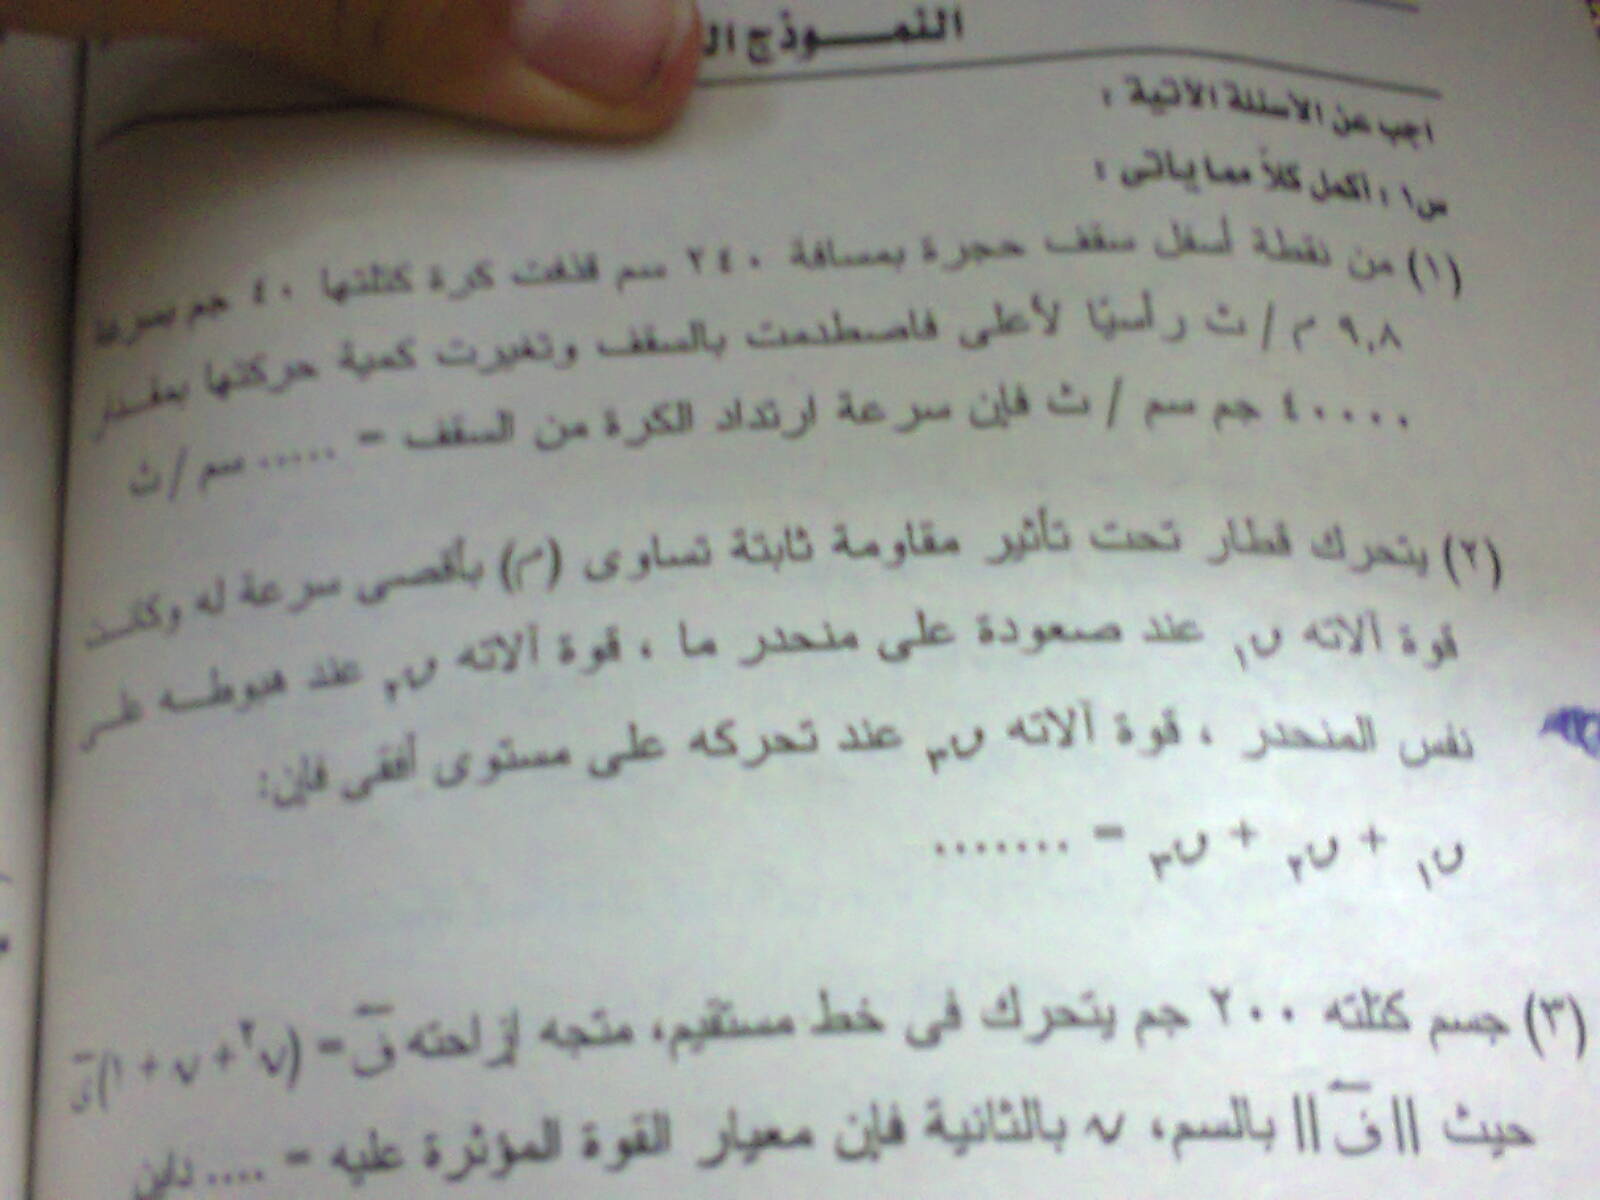 النموذج ال
اجب عن الأسئلة الآتية :
س١ : أكمل كلاً مما يأتى :
(١) من نقطة أسفل سقف حجرة بمسافة ٢٤٠ سم قذفت كرة كتلتها ٤٠ جم بسرعة
٩,٨ م / ث رأسيًا لأعلى فاصطدمت بالسقف وتغيرت كمية حركتها بمقدار
٤٠٠٠٠ جم سم / ث فإن سرعة ارتداد الكرة من السقف = ..... سم / ث
(٢) يتحرك قطار تحت تأثير مقاومة ثابتة تساوى (م) بأقصى سرعة له وكانت
قوة آلاته ق١ عند صعودة على منحدر ما ، قوة آلاته ق٢ عند هبوطه على
نفس المنحدر ، قوة آلاته ق٣ عند تحركه على مستوى أفقى فإن:
ق١ + ق٢ + ق٣ = .......
(٣) جسم كتلته ٢٠٠ جم يتحرك فى خط مستقيم، متجه إزاحته ف = (ن٢ + ن + ١) ى
حيث || ف || بالسم، ن بالثانية فإن معيار القوة المؤثرة عليه = .... داين